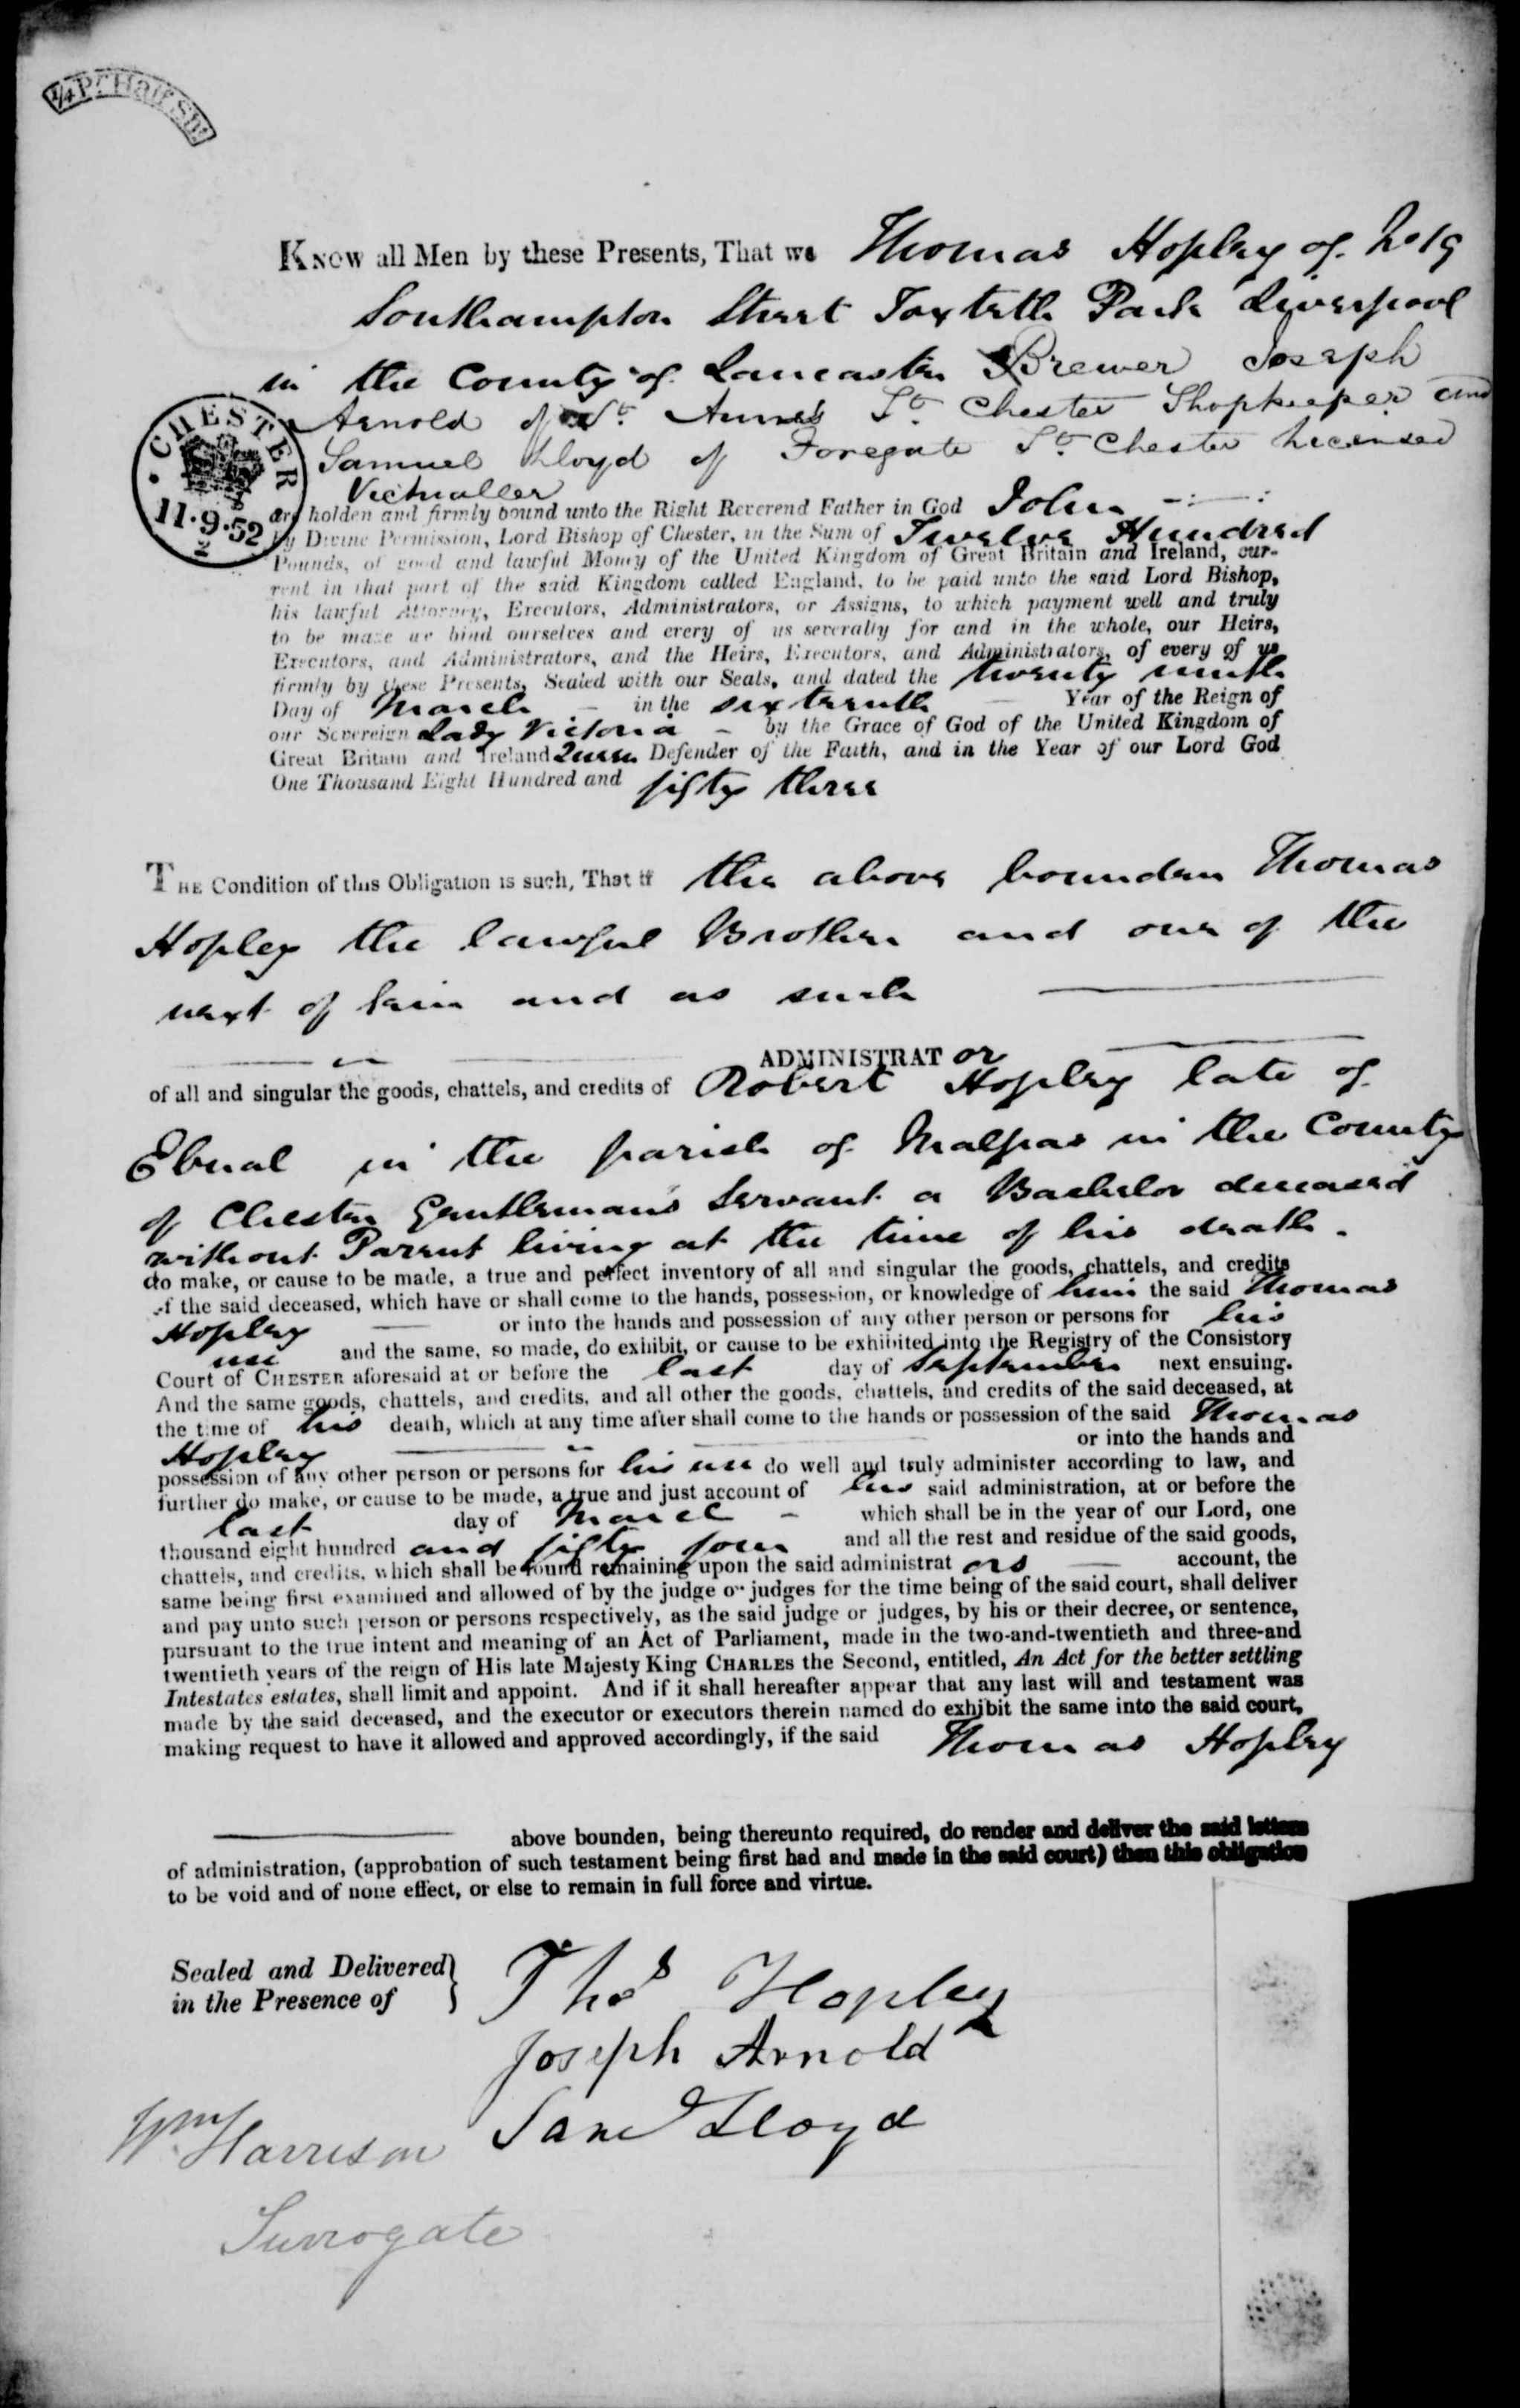 1/4 Pr Half Sht
Know all Men by these Presents, That we Thomas Hopley of No 19
Southampton Street Toxteth Park Liverpool
in the County of Lancaster Brewer Joseph
Arnold of St. Anne's St. Chester Shopkeeper and
Samuel Lloyd of Foregate St. Chester Licensed
Victualler
CHESTER
11.9.52
2
are holden and firmly bound unto the Right Reverend Father in God John
by Divine Permission, Lord Bishop of Chester, in the Sum of Twelve Hundred
Pounds, of good and lawful Money of the United Kingdom of Great Britain and Ireland, cur-
rent in that part of the said Kingdom called England, to be paid unto the said Lord Bishop,
his lawful Attorney, Executors, Administrators, or Assigns, to which payment well and truly
to be made we bind ourselves and every of us severally for and in the whole, our Heirs,
Executors, and Administrators, and the Heirs, Executors, and Administrators, of every of us
firmly by these Presents, Sealed with our Seals, and dated the twenty ninth
Day of March – in the sixteenth – Year of the Reign of
our Sovereign Lady Victoria – by the Grace of God of the United Kingdom of
Great Britain and Ireland Queen Defender of the Faith, and in the Year of our Lord God
One Thousand Eight Hundred and fifty three
THE Condition of this Obligation is such, That if the above bounden Thomas
Hopley the lawful Brother and one of the
next of kin and as such
ADMINISTRAT or
of all and singular the goods, chattels, and credits of Robert Hopley late of
Ebnal in the parish of Malpas in the County
of Chester Gentleman's Servant a Bachelor deceased
without Parent living at the time of his death.
do make, or cause to be made, a true and perfect inventory of all and singular the goods, chattels, and credits
of the said deceased, which have or shall come to the hands, possession, or knowledge of him the said Thomas
Hopley or into the hands and possession of any other person or persons for his
use and the same, so made, do exhibit, or cause to be exhibited into the Registry of the Consistory
Court of CHESTER aforesaid at or before the last day of September next ensuing.
And the same goods, chattels, and credits, and all other the goods, chattels, and credits of the said deceased, at
the time of his death, which at any time after shall come to the hands or possession of the said Thomas
Hopley or into the hands and
possession of any other person or persons for his use do well and truly administer according to law, and
further do make, or cause to be made, a true and just account of his said administration, at or before the
last day of March – which shall be in the year of our Lord, one
thousand eight hundred and fifty four and all the rest and residue of the said goods,
chattels, and credits, which shall be found remaining upon the said administrat ors account, the
same being first examined and allowed of by the judge or judges for the time being of the said court, shall deliver
and pay unto such person or persons respectively, as the said judge or judges, by his or their decree, or sentence,
pursuant to the true intent and meaning of an Act of Parliament, made in the two-and-twentieth and three-and
twentieth years of the reign of His late Majesty King CHARLES the Second, entitled, An Act for the better settling
Intestates estates, shall limit and appoint. And if it shall hereafter appear that any last will and testament was
made by the said deceased, and the executor or executors therein named do exhibit the same into the said court,
making request to have it allowed and approved accordingly, if the said Thomas Hopley
above bounden, being thereunto required, do render and deliver the said letters
of administration, (approbation of such testament being first had and made in the said court) then this obligation
to be void and of none effect, or else to remain in full force and virtue.
Sealed and Delivered
in the Presence of
Thos Hopley
Joseph Arnold
Saml Lloyd
Wm Harrison
Surrogate